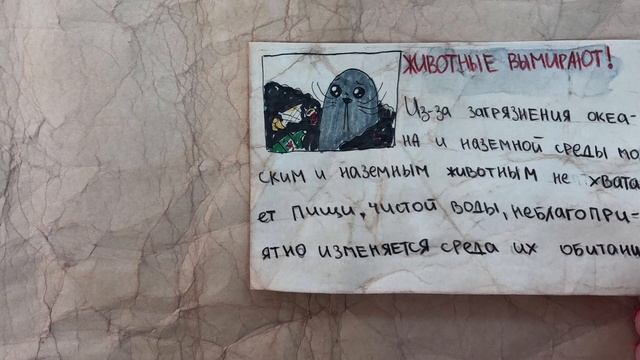 ЖИВОТНЫЕ ВЫМИРАЮТ!
Из-за загрязнения океа-
на и наземной среды мо
ским и наземным животным не хвата
ет пищи, чистой воды, неблагопри-
ятно изменяется среда их обитани